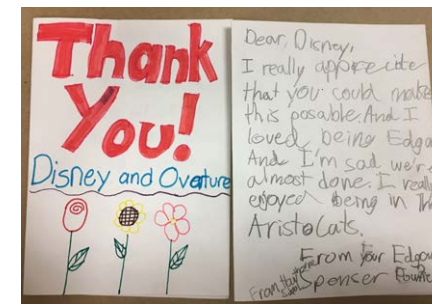 Thank
You!
Disney and Overture
Dear, Disney,
I really apprecidte
that you could make
this posable. And I
loved being Edga
And I'm sad we're
almost done. I reall
enjoyed being in Th
AristoCats.
From your Edga
From